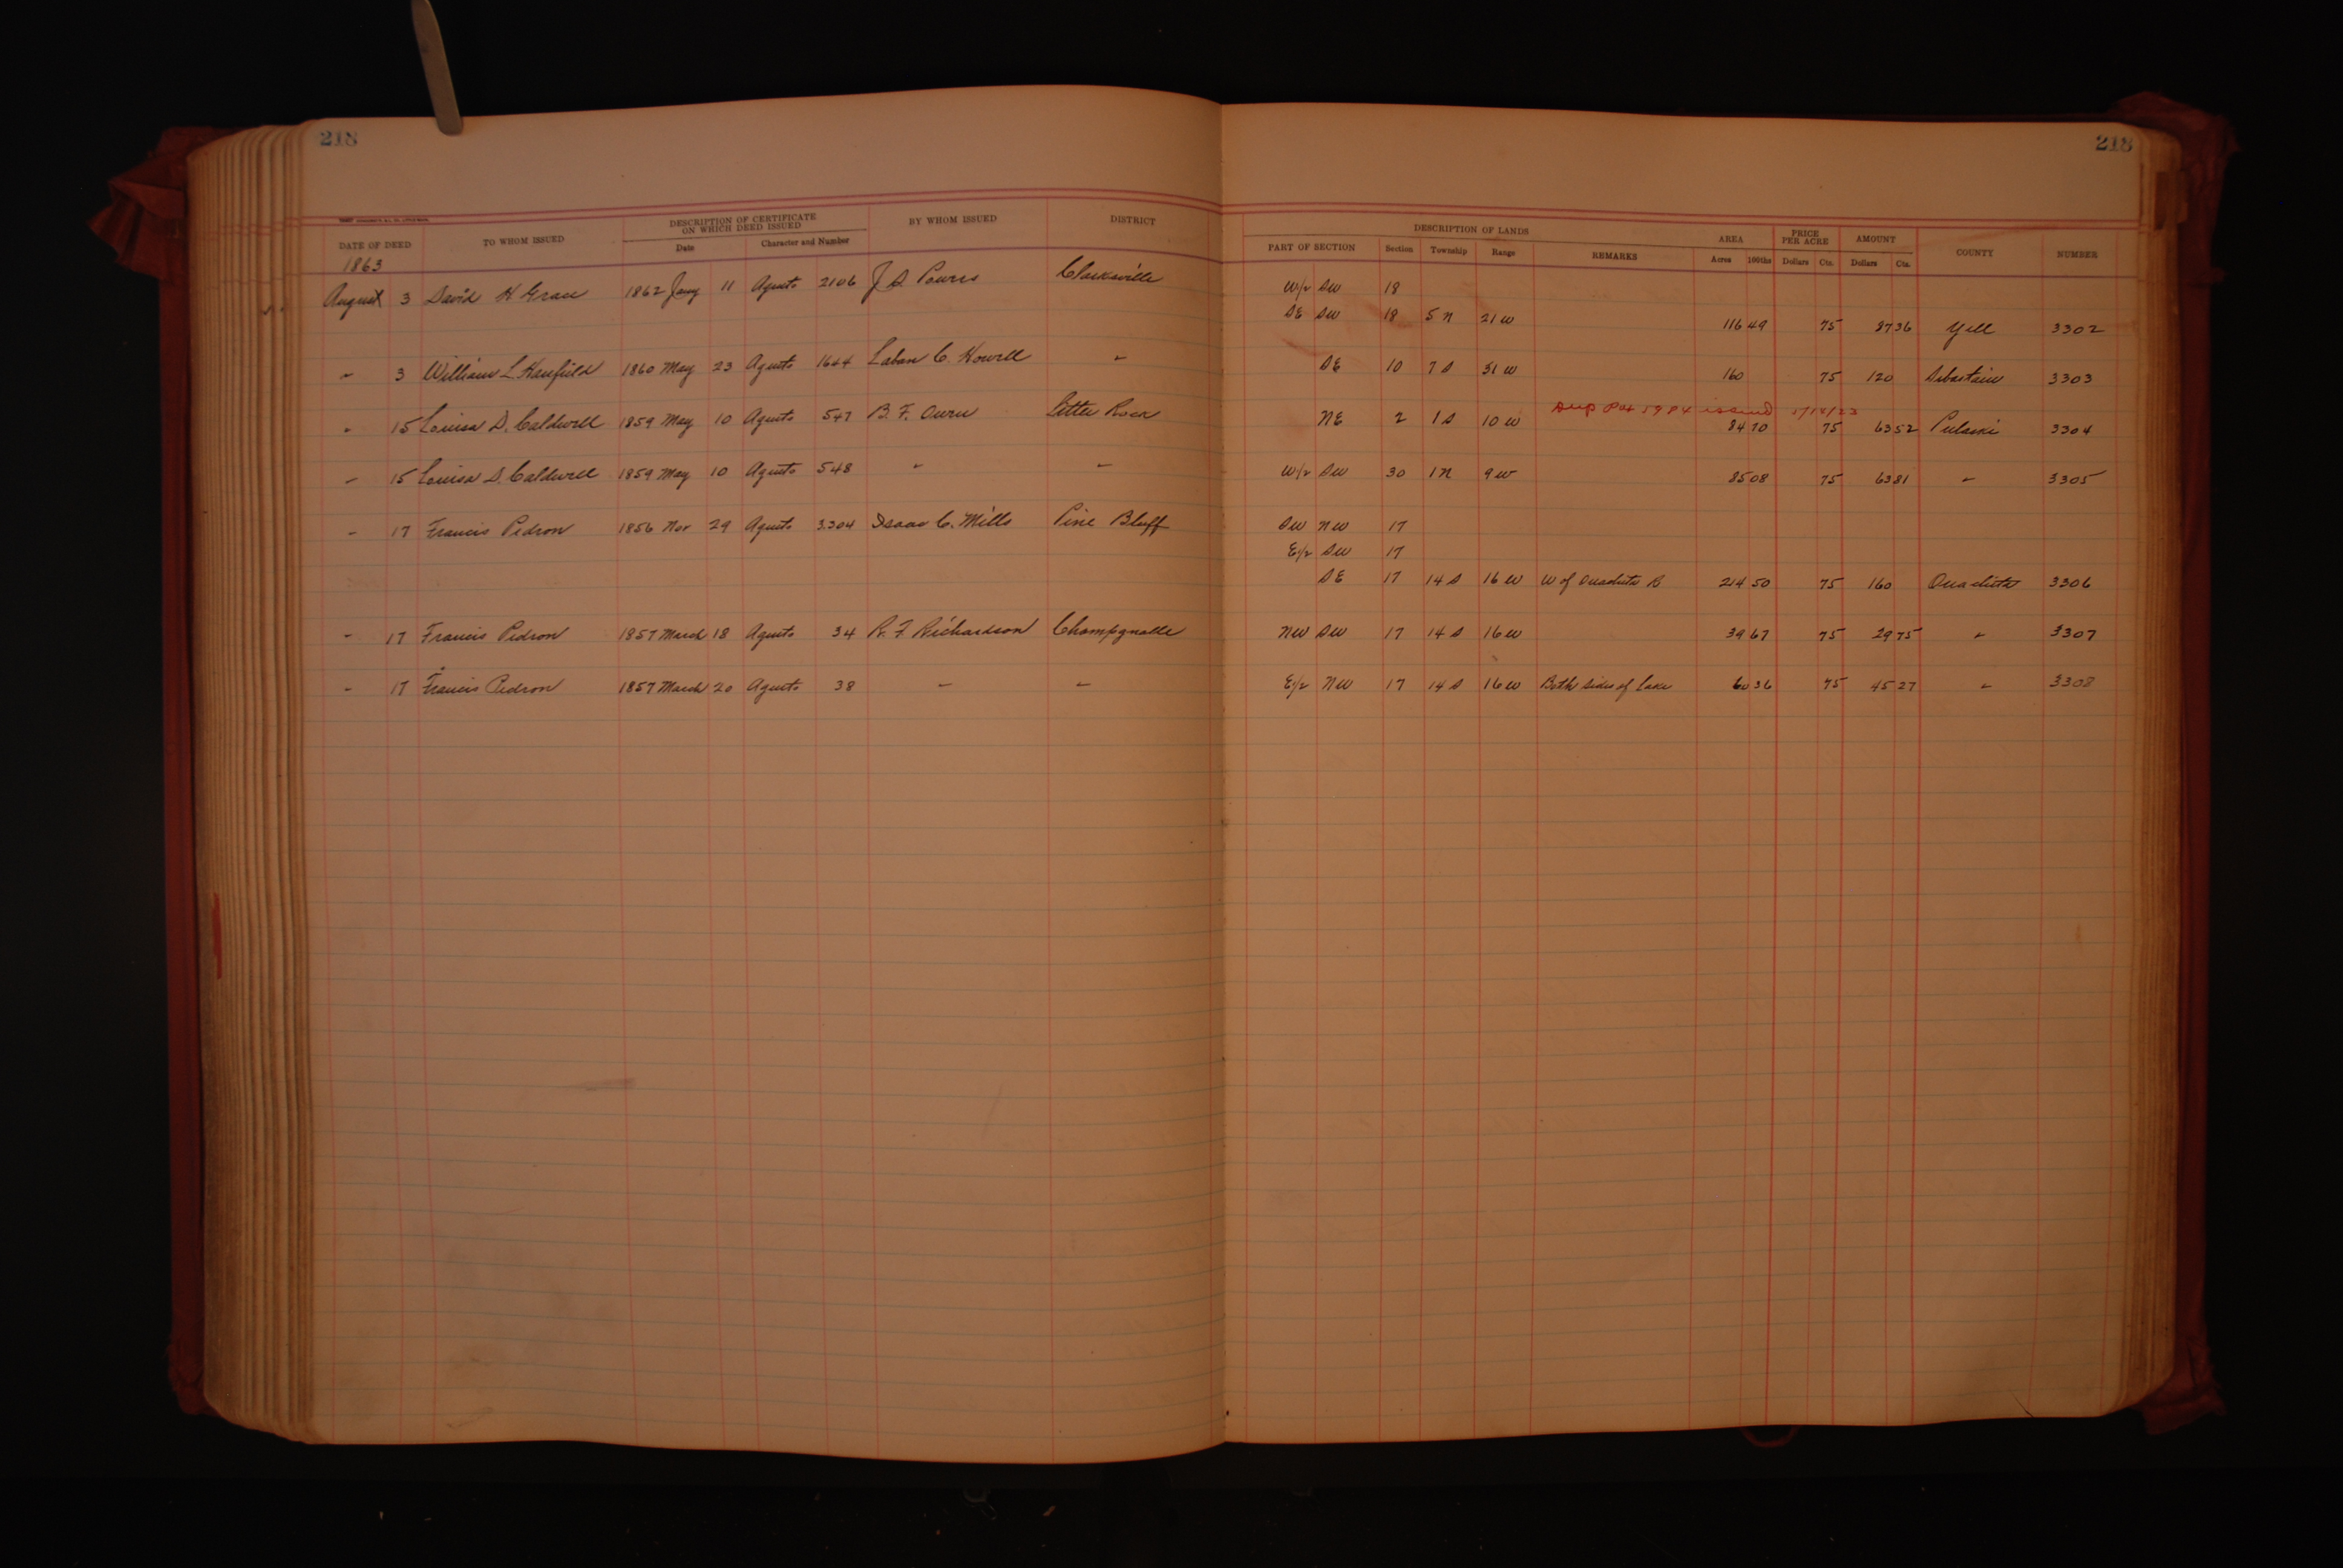 218 218
DESCRIPTION OF CERTIFICATE ON WHICH DEED ISSUED BY WHOM ISSUED DISTRICT DESCRIPTION OF LANDS AREA PRICE PER ACRE AMOUNT
DATE OF DEED TO WHOM ISSUED Date Character and Number PART OF SECTION Section Township Range REMARKS Acres 100ths Dollars Cts. Dollars Cts. COUNTY NUMBER
1863
August 3 David H Grace 1862 Jany 11 Agents 2106 J S Powers Clarksville W/2 SW 18
SE SW 18 5 N 21 W 116 49 75 87 36 Yell 3302
" 3 William L 1860 May 23 Agents 1644 Laban C. Howell " SE 10 7 S 31 W 160 75 120 Sebastain 3303
Dup Pat 1984 issued
" 15 Louisa D. Caldwell 1859 May 10 Agents 547 B. F. Owen Little Rock NE 2 1 S 10 W 84 70 75 63 52 Pulaski 3304
" 15 Louisa D. Caldwell 1859 May 10 Agents 548 " " W/2 SW 30 1 N 9 W 85 08 75 63 81 " 3305
" 17 Francis Pedron 1856 Nov 29 Agents 3304 Isaac C. Mills Pine Bluff SW NW 17
E/2 SW 17
SE 17 14 S 16 W W of Ouachita R 214 50 75 160 Ouachita 3306
" 17 Francis Pedron 1857 March 18 Agents 34 R. F. Richardson Champagnolle NW SW 17 14 S 16 W 39 67 75 29 75 " 3307
" 17 Francis Pedron 1857 March 20 Agents 38 " " E/2 NW 17 14 S 16 W Both sides of Lake 60 36 75 45 27 " 3308